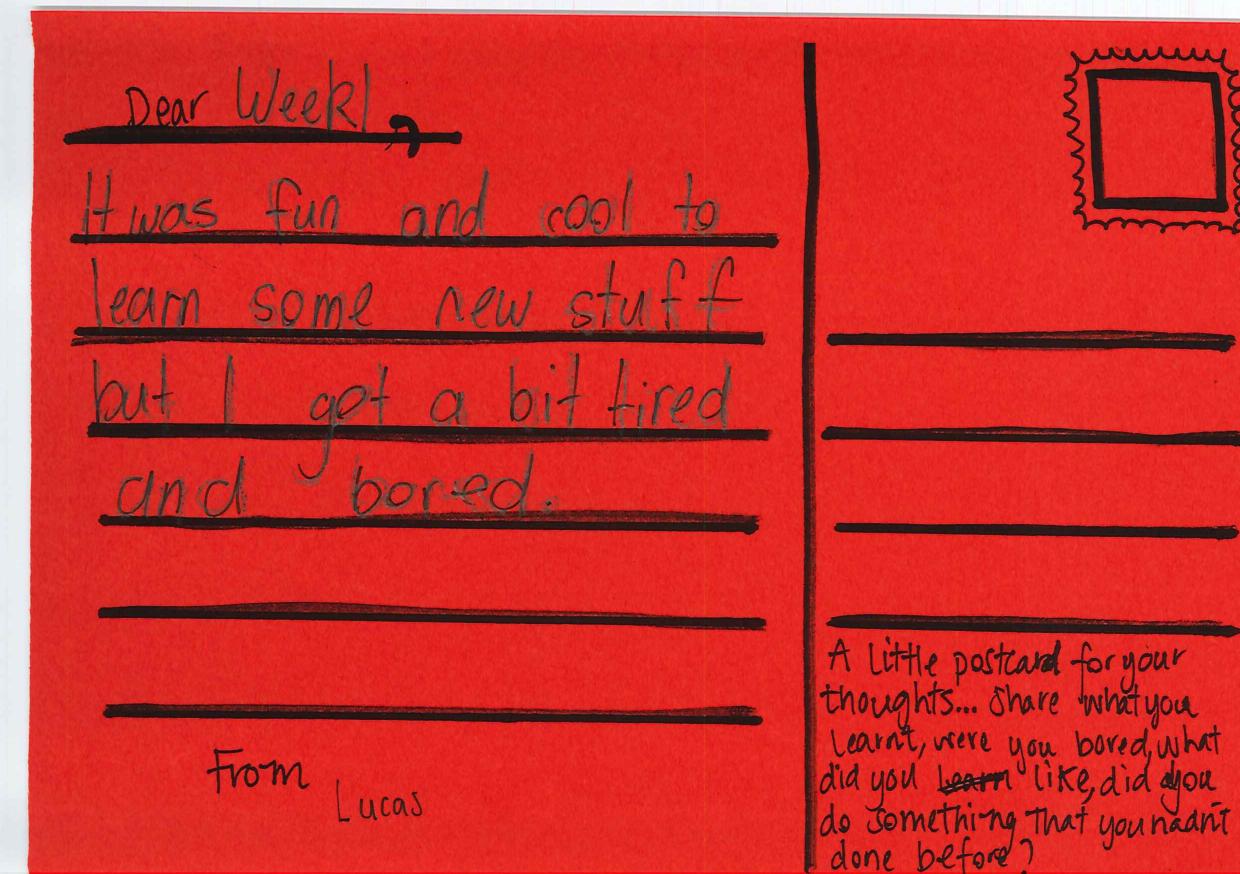 Dear Week1,
It was fun and cool to
learn some new stuff
but I got a bit tired
and bored.
From
Lucas
A little postcard for your
thoughts... Share what you
learnt, were you bored, what
did you learn like, did you
do something that you hadn't
done before?